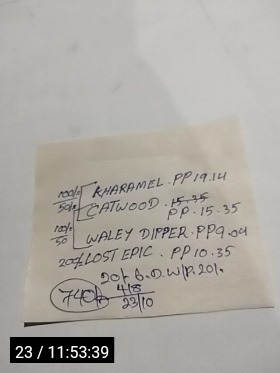 100/- KHARAMEL . PP 19.14
50/- CATWOOD . 15.35
PP . 15.35
100/- WALEY DIPPER . PP 9.04
50
20% LOST EPIC . PP 10.35
20/- B.D. W/P. 20/.
740/- 4/8
23/10
23 / 11:53:39